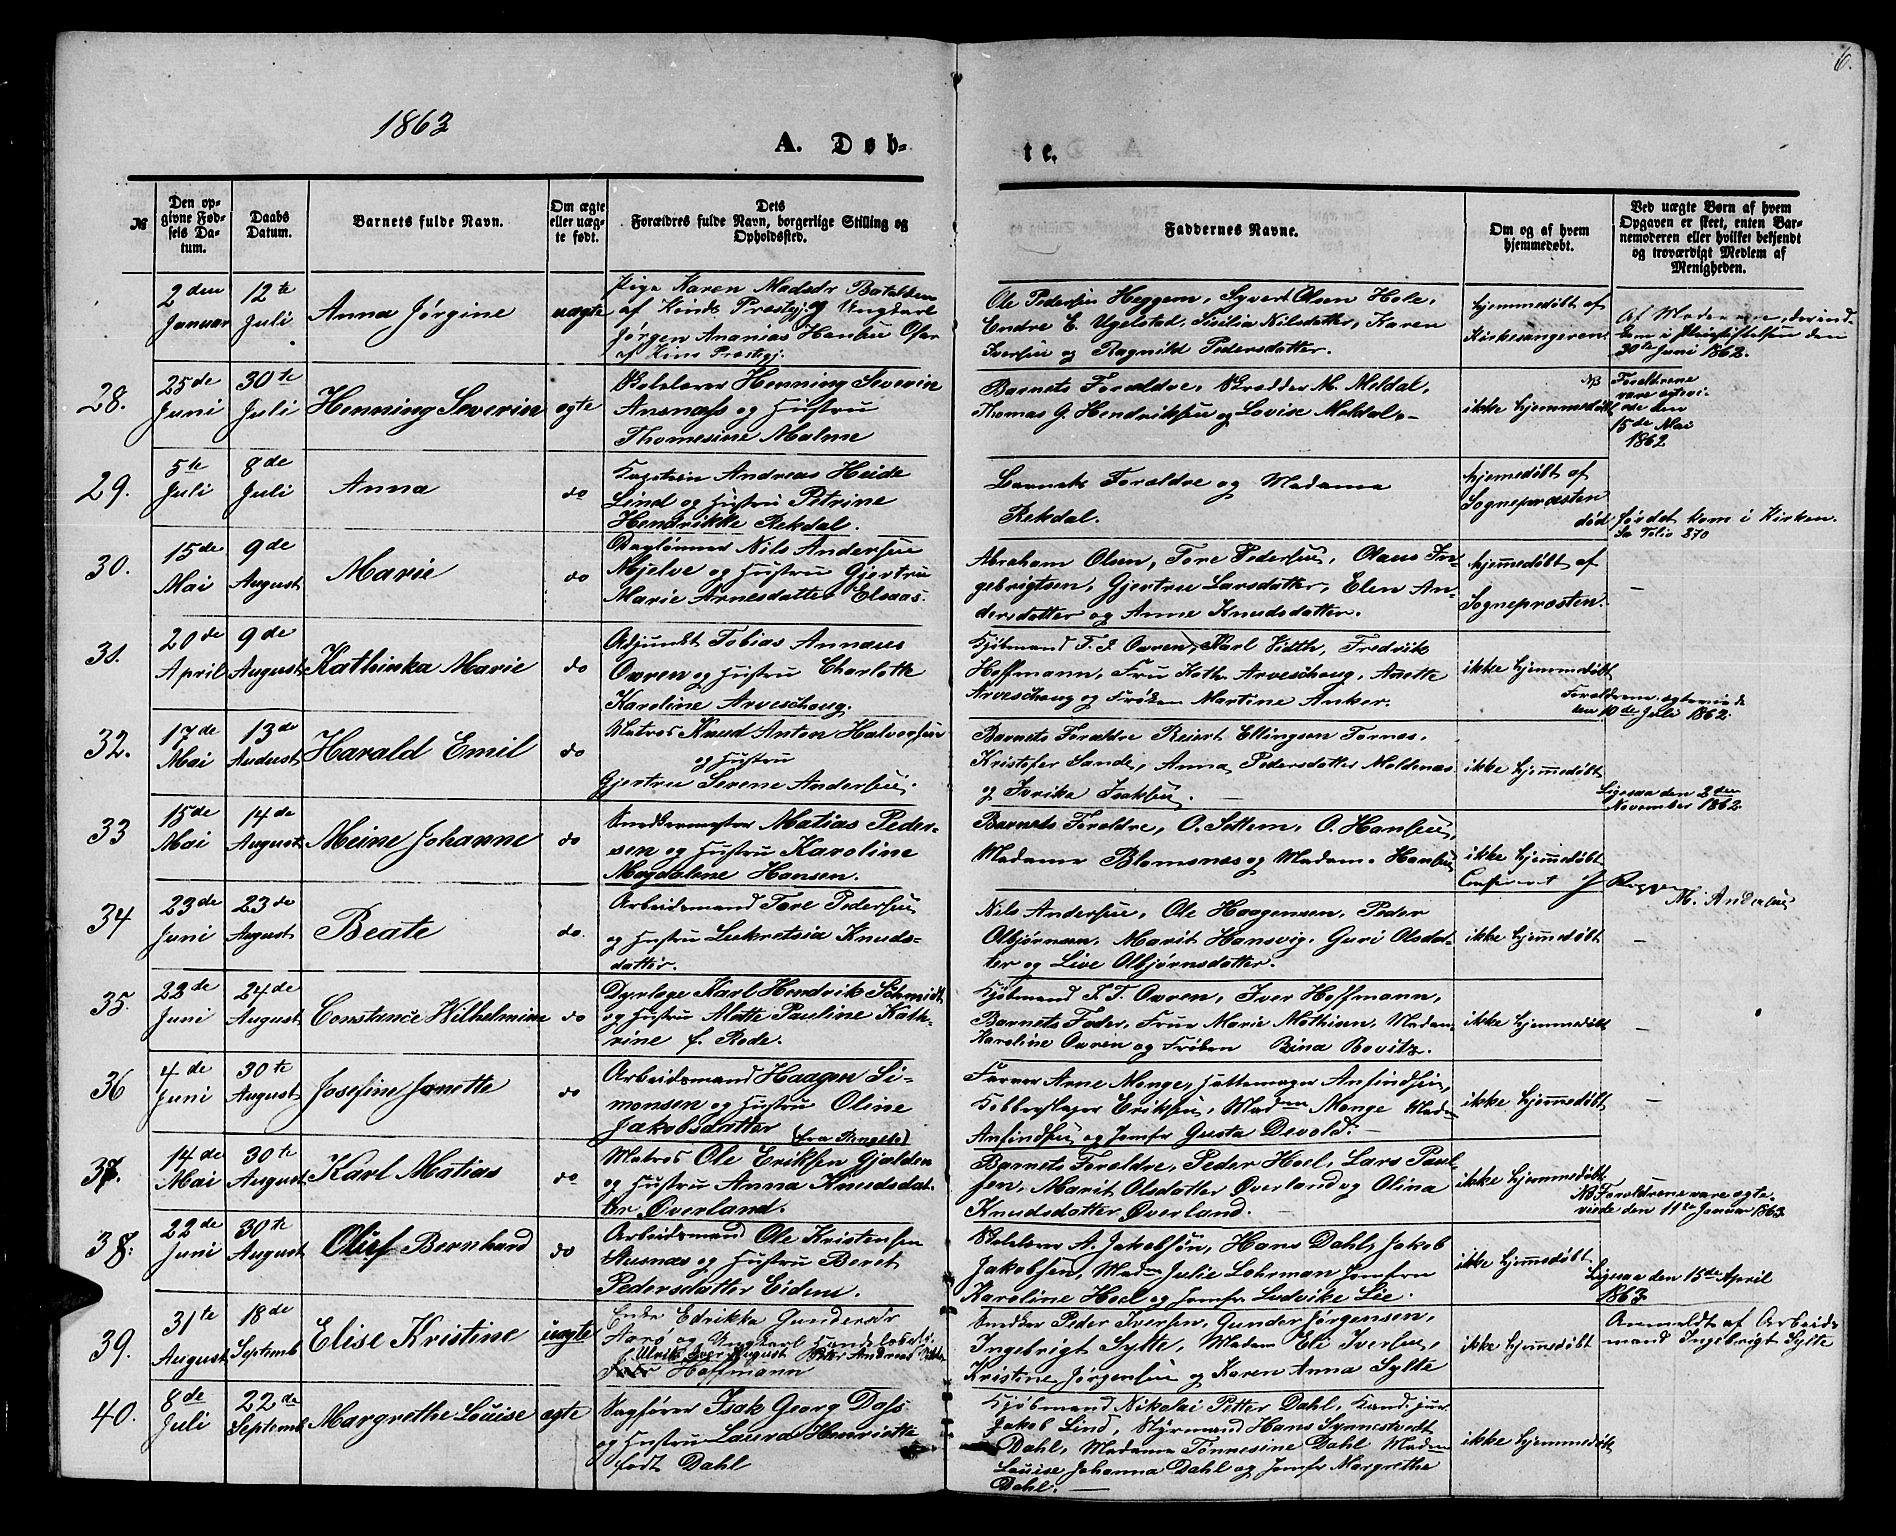 6.
1863
A. Døb-
te.
№
Den op-
givne Fød-
sels Da-
tum.
Daabs
Datum.
Barnets fulde Navn.
Om ægte
eller uæg-
te født.
Dets
Forældres fulde Navn, borgerlige Stilling og
Opholdssted.
Faddernes Navne.
Om og af hvem
hjemmedøbt.
Ved uægte Børn af hvem
Opgaven er skeet, enten Bar-
nemoderen eller hvilket bekjendt
og troværdigt Medlem af
Menigheden.
2den
Januar
12te
Juli
Anna Jørgine
uægte
Pige Karen Madsdr Batalden
af Kinds Præstgj. og Ungkarl
Jørgen Ananias Hansen
af Kinn Præstgj.
Ole Pedersen Heggem, Syvert Olsen Hole,
Endre E. Ugelstad, Sisilia Nilsdatter, Karen
Iversen og Ragnild Pedersdatter.
hjemmedøbt af
Kirkesangeren
Af Moderen, der ind-
kom i Pleiestiftelsen den
30te Juni 1863.
28.
25de
Juni
30te
Juli
Henning Severin
ægte
Skolelærer Henning Severin
Ansnæss og Hustru
Thomesine Malme
Barnets Forældre, Skrædder M. Meldal,
Thomas G. Hendriksen og Lovise Meldal.-
ikke hjemmedøbt
NB Forældrene
vare ægtevi-
ede den
15de Mai
1862
29.
5te
Juli
8de
Juli
Anna
do
Kaptein Andreas Heide
Lind og Hustru Petrine
Hendrikke Rekdal.
Barnets Forældre og Madame
Rekdal.
hjemmedøbt af
Sognepræsten
død førdet kom i Kirken.
Sa Folio 270
30.
15de
Mai
9de
August
Marie
do
Daglønner Nils Andersen
Mjelve og Hustru Gjertru
Marie Arnesdatter Elsaas.
Abraham Olsen, Tore Pedersen, Olaus In-
gebrigtsen, Gjertru Larsdatter, Elen An-
dersdatter og Anne Knudsdatter.
hjemmedøbt af
Sognepræsten.
–
31.
20de
April
9de
August
Kathinka Marie
do
Adjunkt Tobias Annæus
Owren og Hustru Charlotte
Karoline Arveschoug.
Kjøbmand F. J. Owren, Karl Vidth, Fredrik
Hoffmann, Fru Kath. Arveschoug, Anette
Arveschoug og Frøken Martine Anker.
ikke hjemmedøbt
Forældrene ægteviede
den 10de Juli 1862.
32.
17de
Mai
13de
August
Harald Emil
do
Matros Knud Anton Halvorsen
og Hustru
Gjertru Serene Andersen.
Barnets Forældre Reiert Ellingsen Tornes,
Kristofer Sande, Anna Pedersdatter Moldenæs
og Isaksen.
ikke hjemmedøbt
Ligesaa den 2den
November 1862.
33
15de
Mai
14de
August
Meine Johanne
do
Snedkermester Matias Peder-
sen og Hustru Karoline
Magdalene Hansen.
Barnets Forældre, O. Settem, O. Hansen,
Madame Blomsnes og Madam. Hansen
ikke hjemmedøbt
M. Andersen
34
23de
Juni
23de
August
Beate
do.
Arbeidsmand Tore Pedersen
og Hustru Lukretsia Knuds-
datter.
Nils Andersen, Ole Haagensen, Peder
Olbjørnsen, Marit Hansvig, Guri Olsdat-
ter og Live Olbjørnsdatter.
ikke hjemmedøbt
–
35.
22de
Juni
24de
August
Constance Wilhelmine
do
Dyrlæge Karl Hendrik Schmidt,
og Hustru Alette Pauline Kath-
rine f. Rode.
Kjøbmand F. T. Owren, Iver Hoffmann,
Barnets Fader, Frue Marie Mathisen, Madam
Karoline Owren og Frøken Bina Bovitz.
ikke hjemmedøbt
–
36
4de
Juni
30te
August
Josefine Janette
do
Arbeidsmand Haagen Si-
monsen og Hustru Oline
Jakobsdatter
Farver Arne Monge, Hattemager Anfindsen,
Kobberslager Eriksen, Madm Monge Madm
Anfindsen og Jomfr Gusta Devold. –
ikke hjemmedøbt
–
37.
14de
Mai
30te
August
Karl Matias
do
(fra Bergets)
Matros Ole Eriksen Gjelden
og Hustru Anna Knudsdat-
ter Øverland.
Barnets Forældre, Peder Hoel, Lars Paul-
sen, Marit Olsdatter Øverland og Olina
Knudsdatter Øverland.
ikke hjemmedøbt
NB Forældrene vare ægte-
viede den 11te Januar 1863.
38.
22de
Juni
30te
August
Oluf Bernhard
do
Arbeidsmand Ole Kristensen
Stusnæs og Hustru Beret
Pedersdatter Eidem.
Skolelærer A. Jakobsøn, Hans Dahl, Jakob
Jakobsen, Madm Julie Lohrman Jomfru
Karoline Hoel og Jomfr Ludvike Lie.
ikke hjemmedøbt
Ligesaa den 15de April
1863.
39.
31te
August
18de
Septemb
Elise Kristine
uægte
Enke Edrikka Gundersdr
Aarø og Ungkarl Handelsbetj.
Ulrik Iver August
Hoffmann
Snedker Peder Iversen, Gunder Jørgensen,
Ingebrigt Sylte, Madam Eli Iversen,
Kristine Jørgensen og Karen Anna Sylte
ikke hjemmedøbt
Anmeldt af Arbeids-
mand Ingebrigt Sylte
40.
8de
Juli
22de
Septemb
Margrethe Louise
ægte
Sagfører Isak Georg Dass
og Hustru Laura Henriette
født Dahl
Kjøbmand Nikolai Petter Dahl, Kand. jur.
Jakob Lind, Styrmand Hans Synnestvedt
Dahl, Madame Tønnesine Dahl Madm
Louise Johanna Dahl og Jomfr Margrethe
Dahl. –
ikke hjemmedøbt